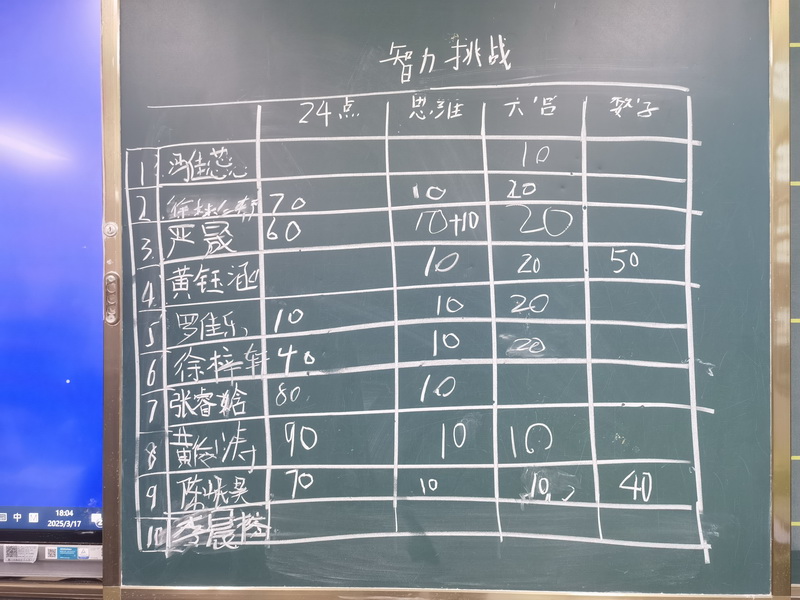 智力挑战
24点 思维 六宫 数字
1 冯佳蕊 10
2 徐 70 10 20
3 严晟 60 10+10 20
4 黄钰涵 10 20 50
5 罗佳乐 10 10 20
6 徐梓轩 40 10 20
7 张睿晗 80 10
8 黄 涛 90 10 10
9 陈 昊 70 10 10 40
10 李晨
18:04
中 2025/3/17